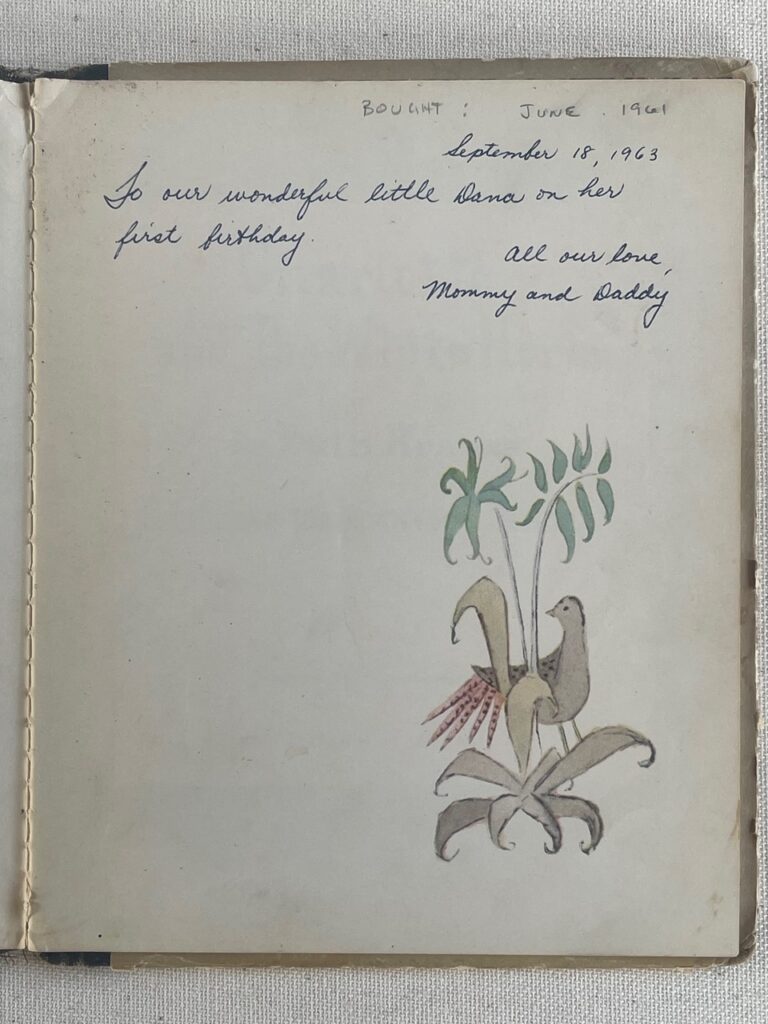 BOUGHT : JUNE . 1961
September 18, 1963
To our wonderful little Dana on her
first birthday.
All our love,
Mommy and Daddy